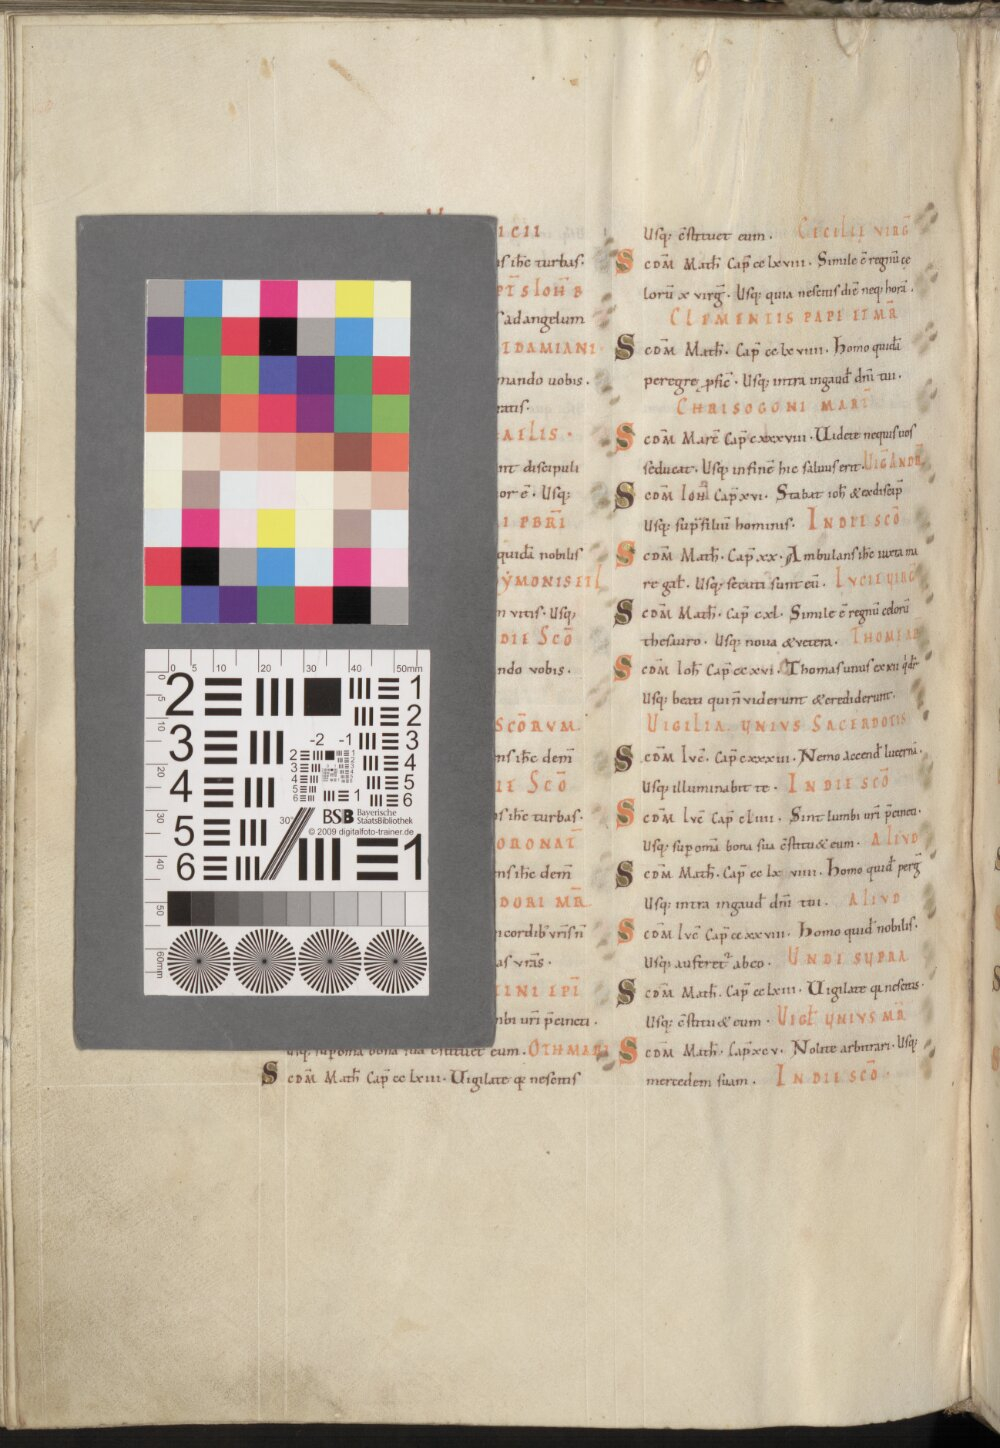 icii
s ihc turbas.
s ioħ b
s ad angelum
idamiani
nando uobis.
ratis.
aelis.
nt discipuli
or ē. Usq;
i pbr̄i
quidā nobilis
ẏmonis
n vitis. Usq;
die Scō
ndo vobis.
Scōrvm.
ns ihc dem̄
ie Scō
s ihc turbas.
oronat̄
ns ihc dem̄
dori mr̄.
as vrās.
tini ep̄i
mbi uri p̄cincti.
usq; supoma bona sua c̄stituet eum. Othmari
Scdm̄ Math Cap̄ cc lxiii. Uigilate qa nescitis
Usq; c̄stituet eum. Cecilie virg̅
Scdm̄ Math̄. Cap̄ cc lxviii. Simile ē regnū ce
lorū x virg̅. Usq; quia nescitis diē neq; horā.
Clementis papę et mr̄
Scdm̄ Math̄. Cap̄ cc lx viiii. Homo quidā
peregre ꝓfic̄. Usq; intra in gaud̄ dn̄i tui.
Chrisogoni mart̄
Scdm̄ Marc̄ Cap̄ cxxxviii. Uidete nequis uos
seducat. Usq; in finē hic saluus erit. Uigl̄ Andr̄
Scdm̄ Ioh̄ Cap̄ xvi. Stabat ioh̄ & ex discip̄
Usq; sup̄ filiū hominis. In die scō
Scdm̄ Math̄. Cap̄ xx. Ambulans ihc iuxta ma
re gal̄. Usq; secuti sunt eū. Lucie uirg̅
Scdm̄ Math̄. Cap̄ cxl. Simile ē regnū celorū
thesauro. Usq; noua & vetera. Thome ap̄
Scdm̄ Ioh̄ Cap̄ cc xvi. Thomas unus ex xii q̄ dr̄
Usq; beati qui n̄ viderunt & crediderunt.
Uigilia. ynivs Sacerdotis
Scdm̄ luc̄. Cap̄ cxxxiii. Nemo accend̄ lucernā.
Usq; illuminabit te. In die scō
Scdm̄ Luc̄ Cap̄ cliiii. Sint lumbi uri p̄cincti.
Usq; supoma bona sua c̄stitu& eum. Alivd
Scdm̄ Math̄. Cap̄ cc lx viiii. Homo quid̄ perg̅
Usq; intra in gaud̄ dn̄i tui. Alivd
Scdm̄ luc̄ Cap̄ cc xxviii. Homo quid̄ nobilis.
Usq; auferet᷑ ab eo. Undi svpra
Scdm̄ Math̄. Cap̄ cc lxiii. Uigilate qa nescitis.
Usq; c̄stitu& eum. Uigl̄ ynivs mr̄
Scdm̄ Math̄. Cap̄ xcv. Nolite arbitrari. Usq;
mercedem suam. In die scō.
0 5 10 20 30 40 50mm
0 5 10 20 30 40 50 60mm
2 1
2
3 3
4 4
5
5 6
6 1
-2 -1
30°
BSB Bayerische
StaatsBibliothek
© 2009 digitalfoto-trainer.de